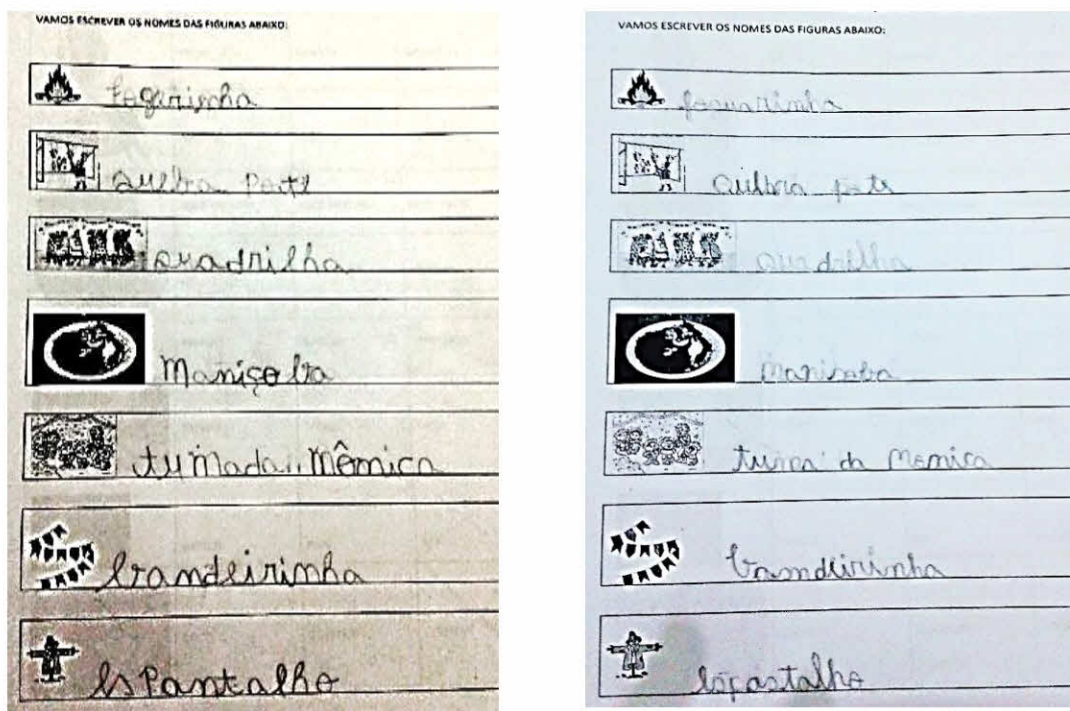 VAMOS ESCREVER OS NOMES DAS FIGURAS ABAIXO:
fogerinha
quebra Pote
quadrilha
Maniçoba
tumada Mômica
bandeirinha
esPantalho
VAMOS ESCREVER OS NOMES DAS FIGURAS ABAIXO:
foguarinha
quilbra pote
quadrilha
manisoba
turma da Momica
bamdeirinha
espastalho